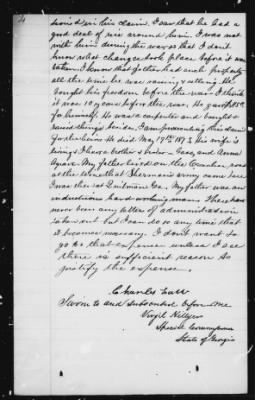 4
in his claim. I saw that he had a
good deal of rice around him. I was not
with him during the war so that I don't
know what change took place before it was
taken. I know that father had such property
all the time he was raising & selling. He
bought his freedom before the war. I think
it was 10 years before the war. He paid
for himself. He was a carpenter and bought &
raised things besides. I am presenting this claim
for the heirs. He died May 187 & his wife is
living. I have a brother & sister
My father lived on the place
at the time that Sherman's army came here
I was then at Quitman Ga. My father was an
industrious hard working man. There has
never been any letter of administration
taken out but I can do so any time that
it becomes necessary. I don't want to
go to that expense unless I see
there is sufficient reason to
justify the expense.
Charles Law
Sworn to and subscribed before me
Virgil Hillyer
Special Commissioner
State of Georgia